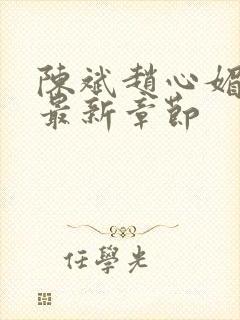 陳斌趙心媚
最新章節
任學光